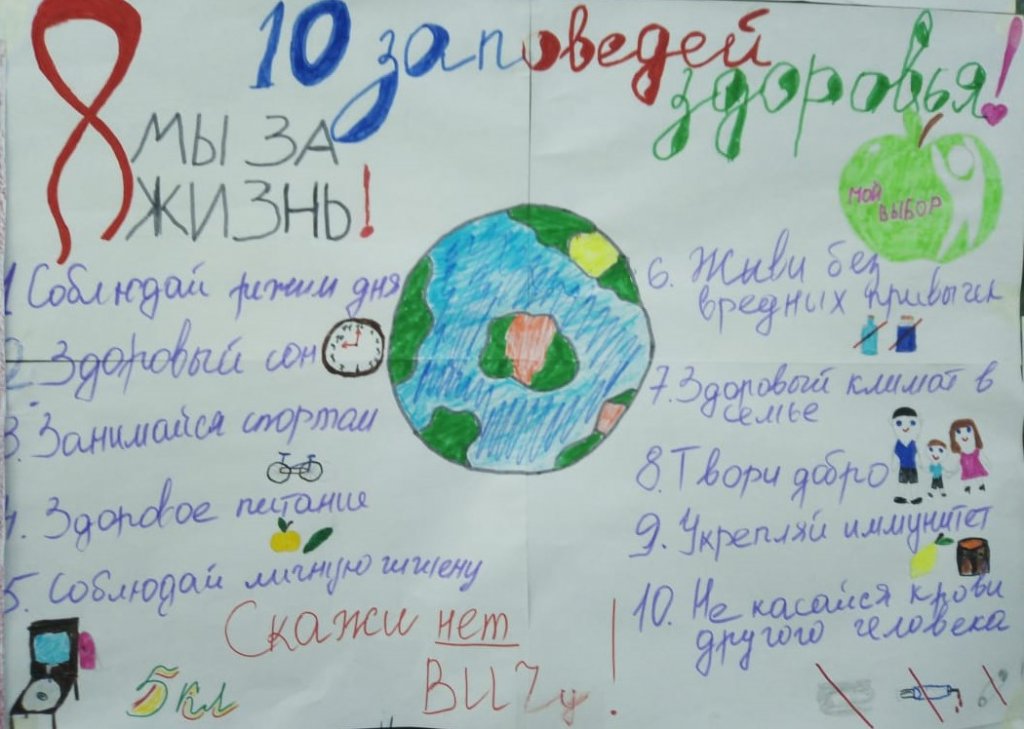 10 заповедей
здоровья!
МЫ ЗА
ЖИЗНЬ!
МОЙ
ВЫБОР
1 Соблюдай режим дня
2. Здоровый сон
3. Занимайся спортом
4. Здоровое питание
5. Соблюдай личную гигиену
6. Живи без
вредных привычек
7. Здоровый климат в
семье
8. Твори добро
9. Укрепляй иммунитет
10. Не касайся крови
другого человека
Скажи нет
ВИЧу!
5 кл